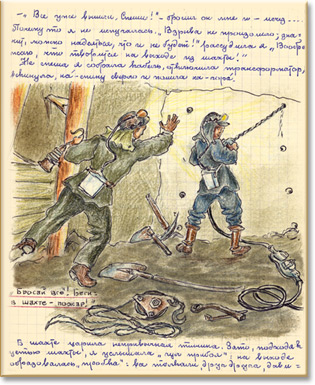 -"Все уже вышли, спеши!" - бросил он мне и -
Почему-то я не испугалась. Взрыва не произошло, зна-
чит, можно надеяться, что и не будет! рассудила я,
что творится на выходе из шахты!"
Не спеша я собрала кабель, отключила трансформатор,
вскинула на спину сверло и пошла на-гора.
Бросай всё! Беги:
в шахте - пожар!
В шахте царила непривычная тишина. Зато, подходя к
устью шахты, я услышала "шум прибоя": на выходе
образовалась "пробка":